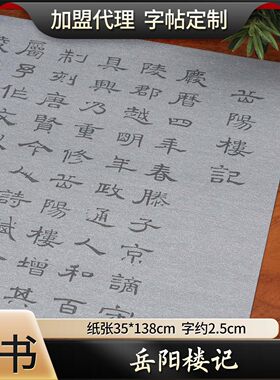 加盟代理 字帖定制
岳陽樓記
慶曆四年春滕子京謫守
陵郡越明年政通人和百
具興乃重修岳陽樓增其
制刻唐賢今人詩賦
屬予作文以
书
纸张35*138cm 字约2.5cm
岳阳楼记